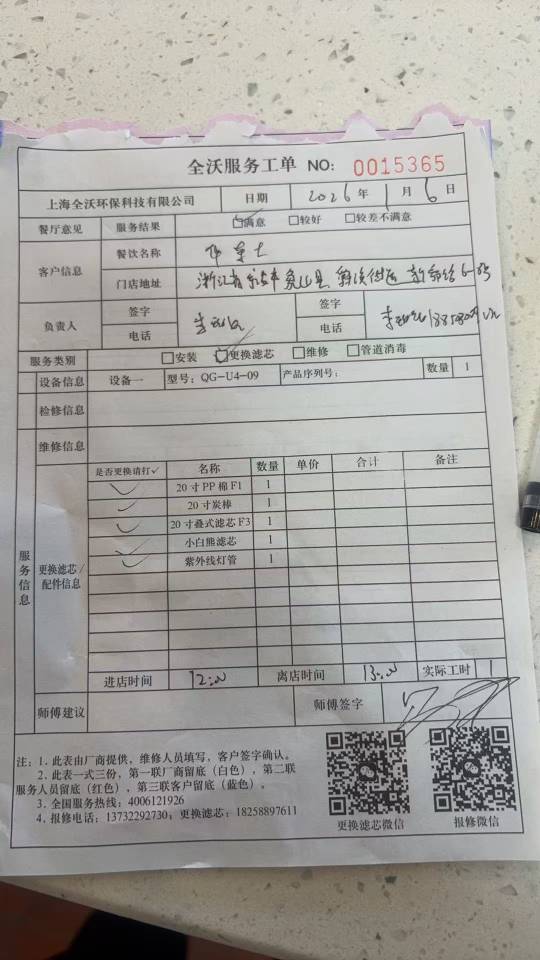 全沃服务工单 NO: 0015365
上海全沃环保科技有限公司 日期 2026 年 1 月 6 日
餐厅意见 服务结果 ☑满意 □较好 □较差不满意
客户信息 餐饮名称
门店地址 浙江省
负责人 签字 签字
电话 电话
服务类别 □安装 ☑更换滤芯 □维修 □管道消毒
设备信息 设备一 型号：QG-U4-09 产品序列号： 数量 1
检修信息
维修信息
服务信息 更换滤芯/配件信息 是否更换请打✓ 名称 数量 单价 合计 备注
✓ 20寸PP棉F1 1
✓ 20寸炭棒 1
✓ 20寸叠式滤芯F3 1
✓ 小白熊滤芯 1
✓ 紫外线灯管 1
进店时间 12:00 离店时间 13:00 实际工时 1
师傅建议 师傅签字
注：1. 此表由厂商提供，维修人员填写，客户签字确认。
2. 此表一式三份，第一联厂商留底（白色），第二联
服务人员留底（红色），第三联客户留底（蓝色）。
3. 全国服务热线：4006121926
4. 报修电话：13732292730；更换滤芯：18258897611
更换滤芯微信 报修微信